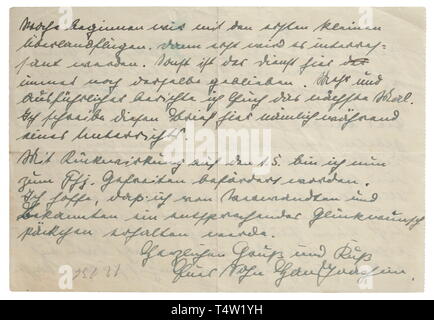 Woche beginnen wir mit den ersten kleinen
Überlandflügen. Dann erst wird es interes-
sant werden. Sonst ist der Dienst hier
immer noch derselbe geblieben. Mehr und
Ausführlicher berichte ich Euch das nächste Mal.
Ich schreibe diesen Brief hier nämlich während
eines Unterrichts.
Mit Rückwirkung auf den 1.5. bin ich nun
zum Gefreiten befördert worden.
Ich hoffe, daß ich von Verwandten und
Bekannten ein entsprechendes Glückwunsch
päckchen erhalten werde.
Herzlichen Gruß und Kuß
Euer Sohn Hans Joachim.
alamy
Image ID: T4W1YH
www.alamy.com